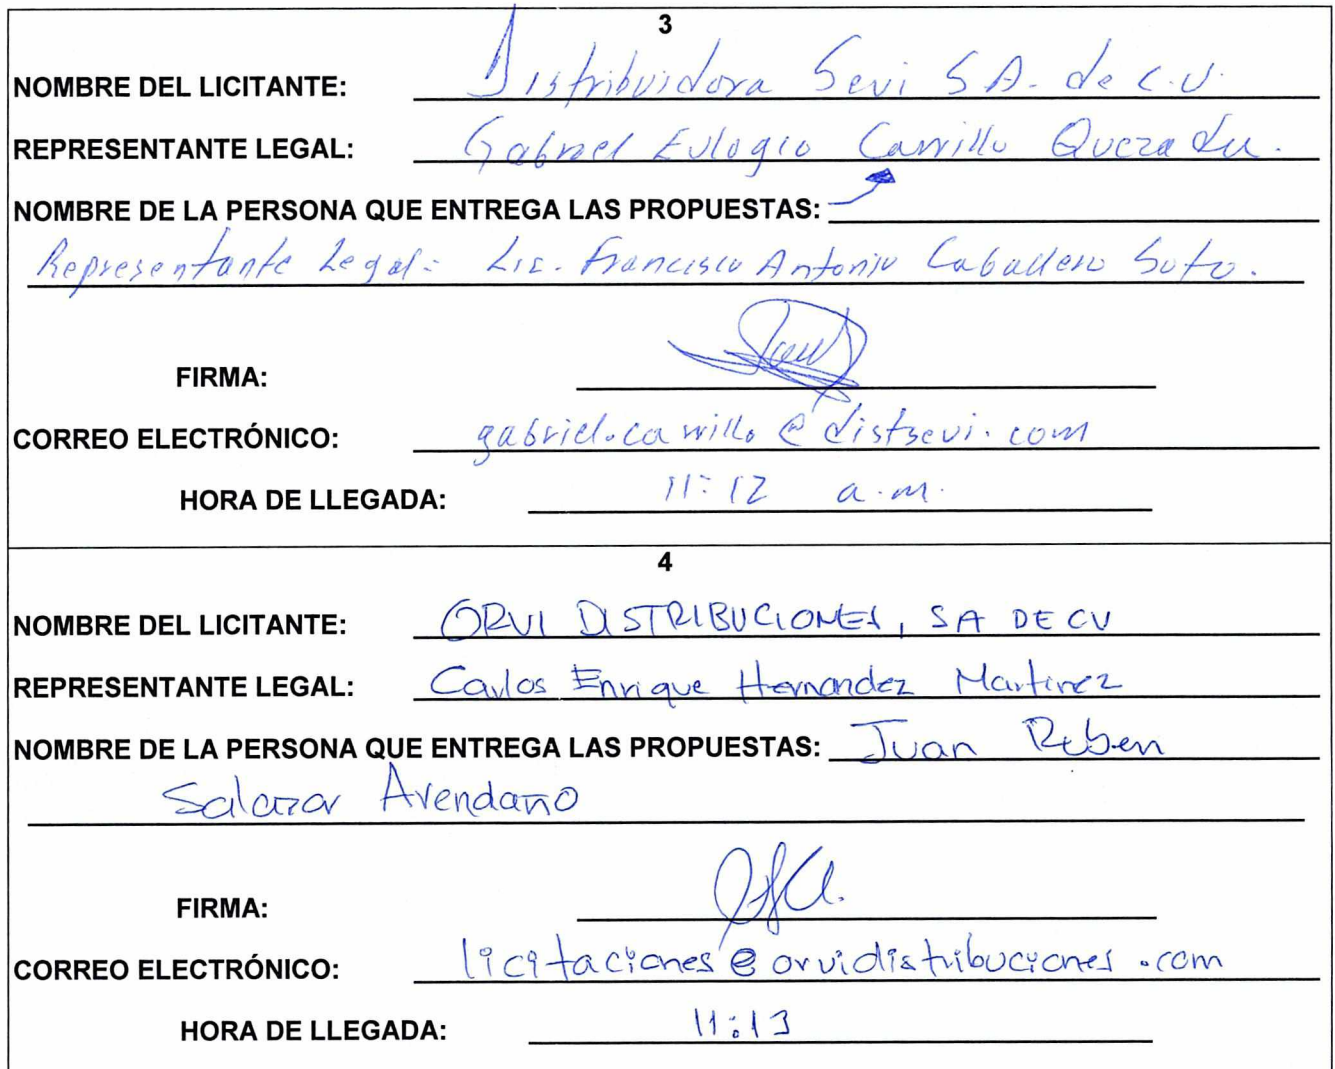 3
NOMBRE DEL LICITANTE: Distribuidora Sevi S.A. de C.V.
REPRESENTANTE LEGAL: Gabriel Eulogio Carrillo Quezada.
NOMBRE DE LA PERSONA QUE ENTREGA LAS PROPUESTAS:
Representante Legal: Lic. Francisco Antonio Caballero Soto.
FIRMA:
CORREO ELECTRÓNICO: gabriel.carrillo@distsevi.com
HORA DE LLEGADA: 11:12 a.m.
4
NOMBRE DEL LICITANTE: ORVI DISTRIBUCIONES, SA DE CV
REPRESENTANTE LEGAL: Carlos Enrique Hernandez Martinez
NOMBRE DE LA PERSONA QUE ENTREGA LAS PROPUESTAS: Juan Ruben
Salazar Avendaño
FIRMA:
CORREO ELECTRÓNICO: licitaciones@orvidistribuciones.com
HORA DE LLEGADA: 11:13